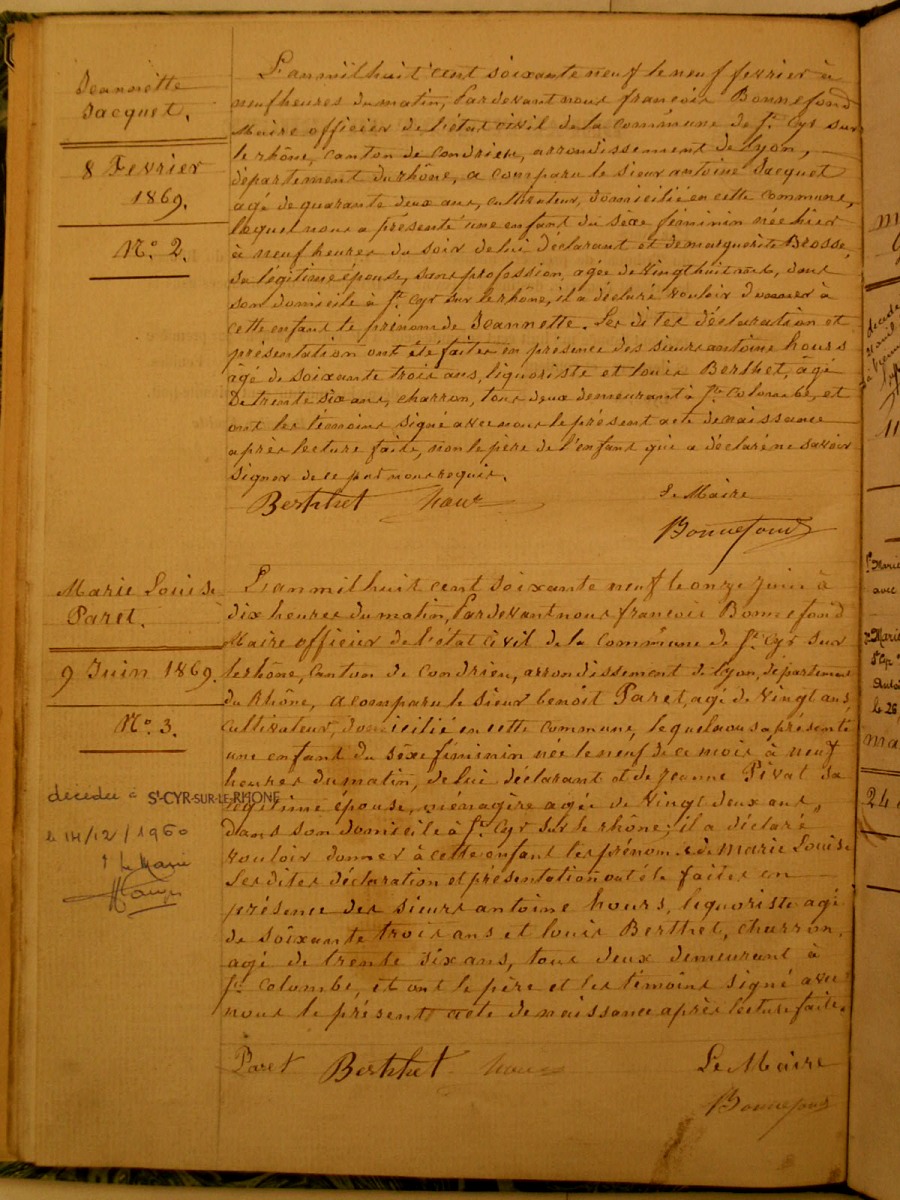 Jeannette
Jacquet.
8 Fevrier
1869.
N° 2.
L'an mil huit cent soixante neuf le neuf fevrier à
neuf heures du matin, Pardevant nous françois Bonnefond
Maire officier de l'état civil de la commune de St Cyr sur
le rhône, canton de Condrieu, arrondissement de Lyon,
département du rhône, a comparu le sieur antoine Jacquet
agé de quarante deux ans, cultivateur, domicilié en cette commune,
lequel nous a présenté une enfant du sexe féminin née hier
à neuf heures du soir de lui déclarant et de marguerite Brosse,
sa légitime épouse, sans profession, agée de vingt huit ans, dans
son domicile à St Cyr sur le rhône, il a déclaré vouloir donner à
cette enfant le prénom de Jeannette. Les dites déclaration et
présentation ont été faites en présence des sieurs antoine hours
âgé de soixante trois ans, liquoriste et louis Berthet, âgé
De trente six ans, charron, tous deux demeurant à Ste Colombe, et
ont les témoins signé avec nous le présent acte de naissance
après lecture faite, non le père de l'enfant qui a déclaré ne savoir
signer de ce par nous requis.
Berthet hours Le Maire
Bonnefond
Marie Louise
Paret.
9 Juin 1869.
N° 3.
décédée à ST-CYR-SUR-LE-RHÔNE
le 14/12/1960
Le Maire
L'an mil huit cent soixante neuf le onze juin à
dix heures du matin, Pardevant nous françois Bonnefond
Maire officier de l'état civil de la commune de St Cyr sur
le rhône, Canton de Condrieu, arrondissement de Lyon, département
du Rhône, a comparu le sieur benoît Paret, agé de vingt ans,
cultivateur, domicilié en cette commune, lequel nous a présenté
une enfant du sexe féminin née le neuf de ce mois à neuf
heures du matin, de lui déclarant et de jeanne Pivat sa
légitime épouse, ménagère agée de vingt deux ans,
dans son domicile à St Cyr sur le rhône; il a déclaré
vouloir donner à cette enfant les prénoms de Marie Louise
Les dites déclaration et présentation ont été faites en
présence des sieurs antoine hours, liquoriste agé
de soixante trois ans et louis Berthet, charron,
agé de trente six ans, tous deux demeurant à
Ste Colombe, et ont le père et les témoins signé avec
nous le présent acte de naissance après lecture faite.
Paret Berthet hours Le Maire
Bonnefond